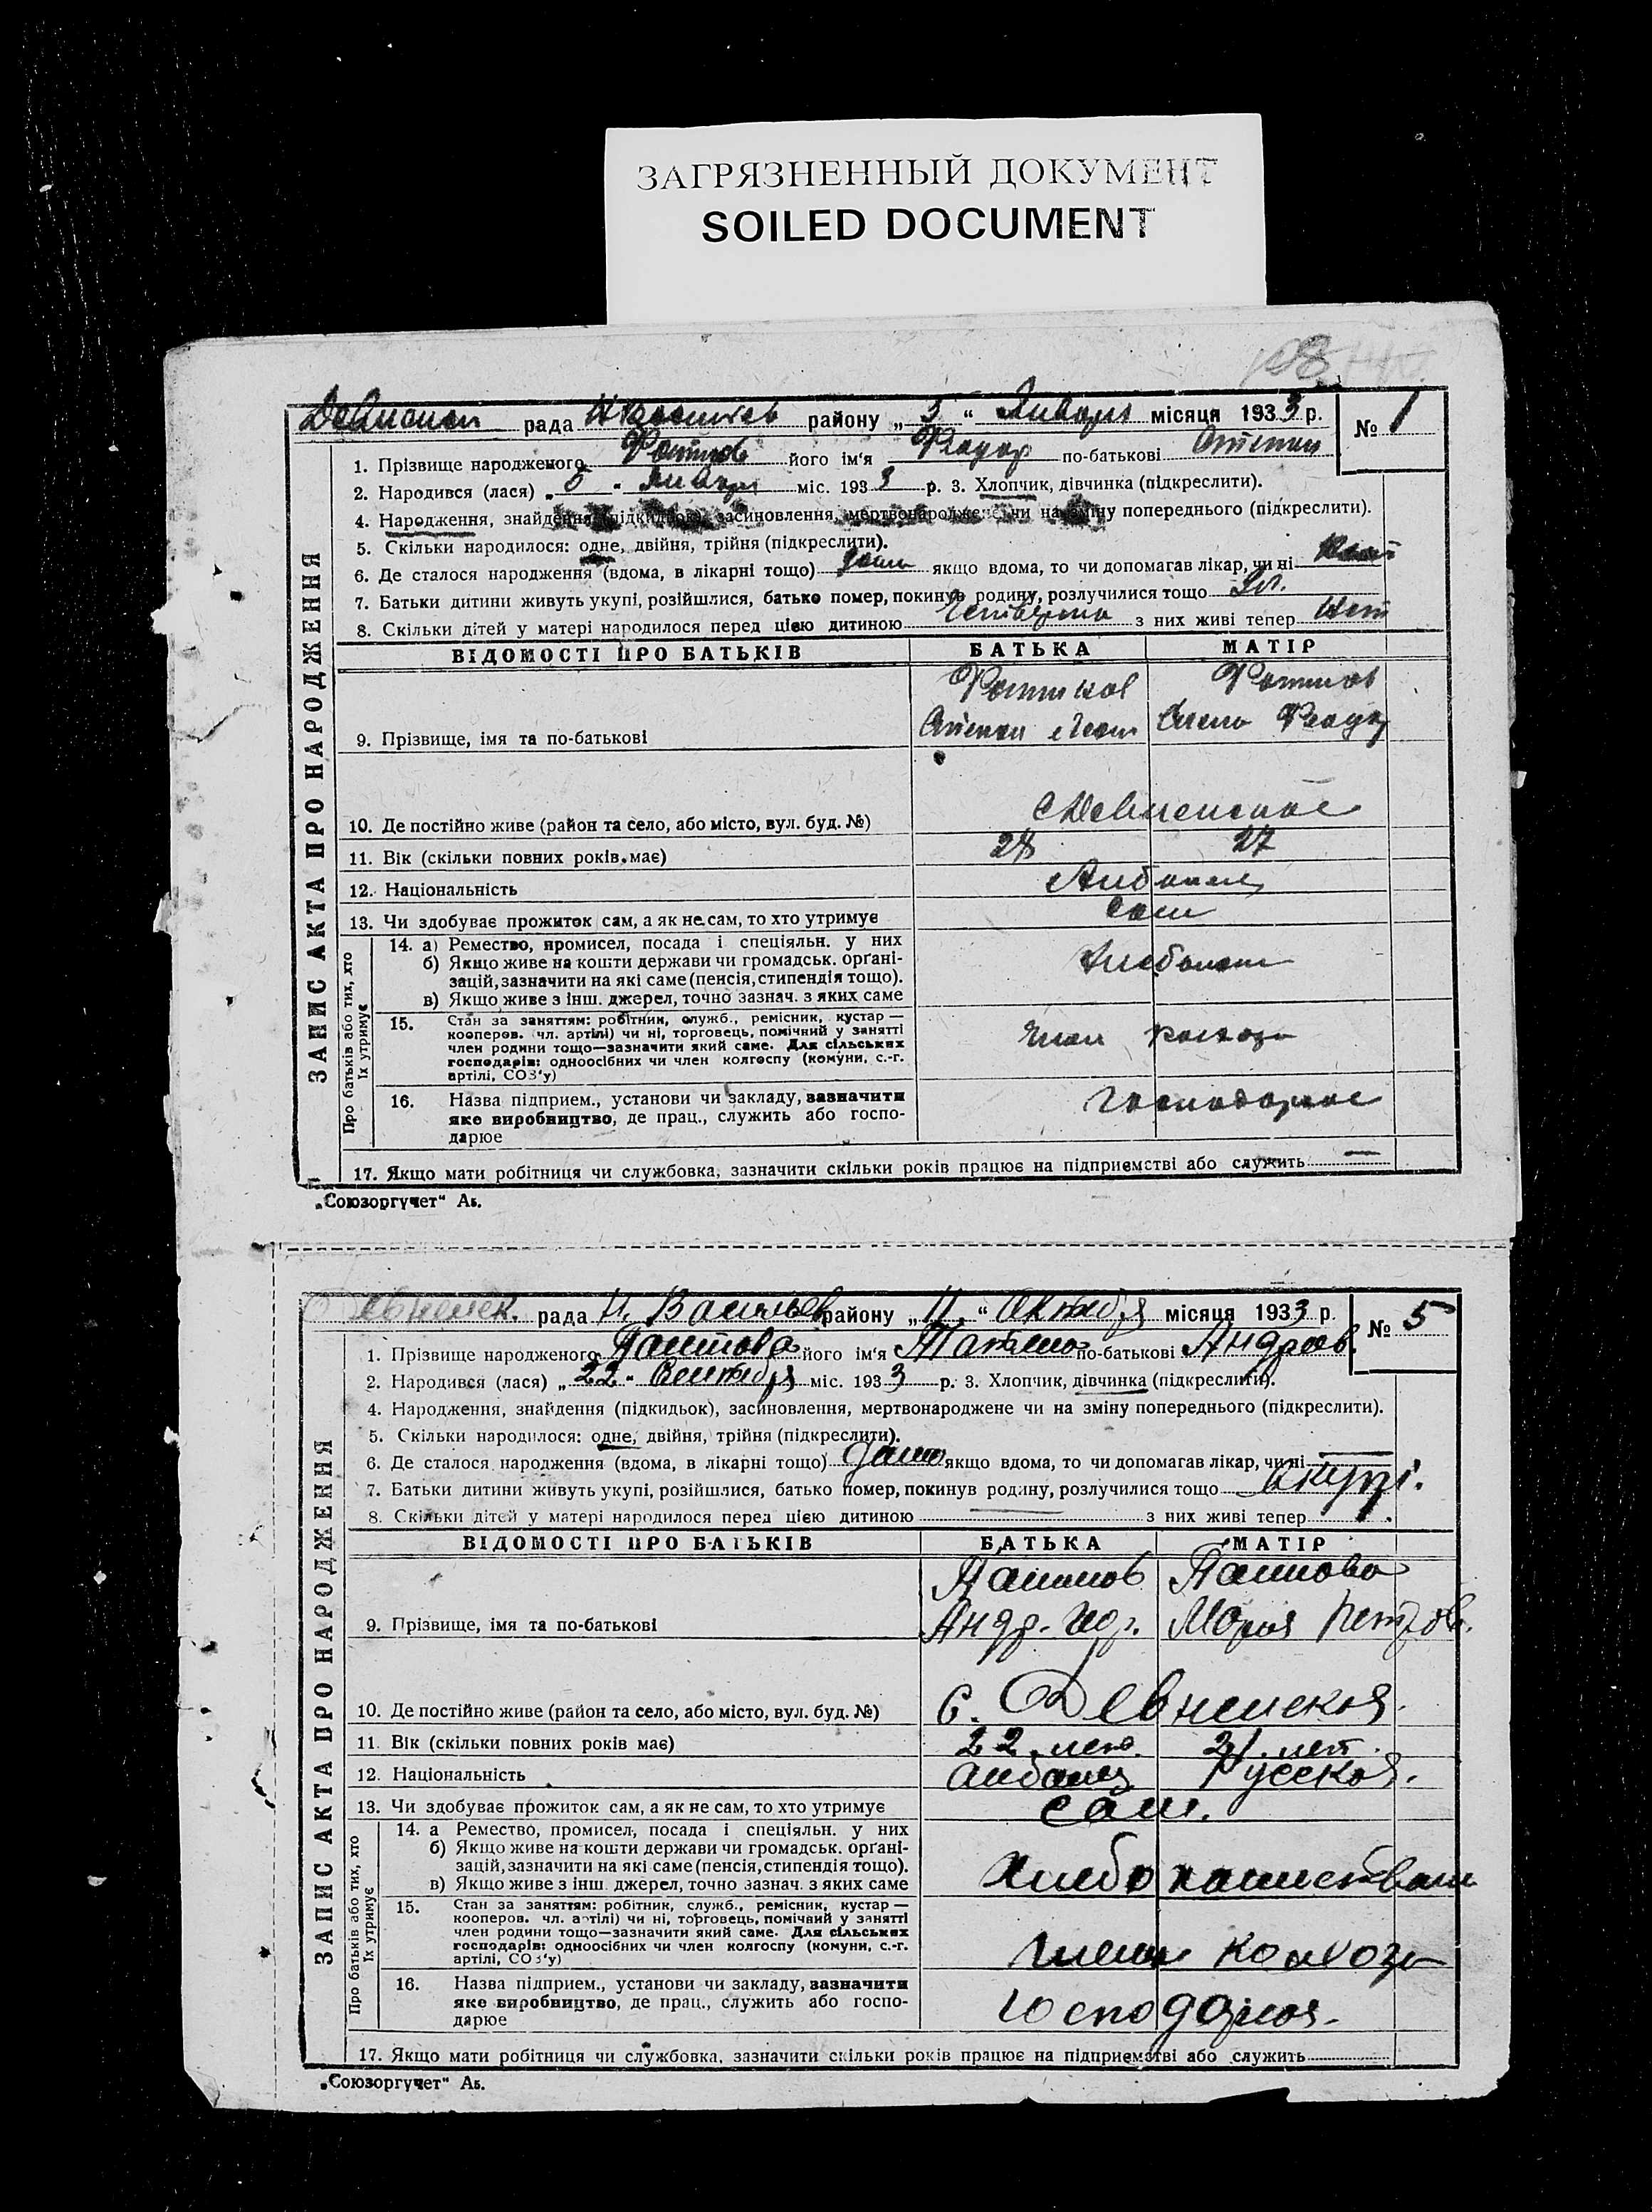 ЗАГРЯЗНЕННЫЙ ДОКУМЕНТ
SOILED DOCUMENT
рада району „ 5 “ Января місяця 1933 р. № 1
ЗАПИС АКТА ПРО НАРОДЖЕННЯ
1. Прізвище народженого його ім'я по-батькові Степан
2. Народився (лася) „ “ Января міс. 1933 р. 3. Хлопчик, дівчинка (підкреслити).
4. Народження, знайдення (підкидьок), засиновлення, мертвонароджене чи на зміну попереднього (підкреслити).
5. Скільки народилося: одне, двійня, трійня (підкреслити).
6. Де сталося народження (вдома, в лікарні тощо) дома якщо вдома, то чи допомагав лікар, чи ні
7. Батьки дитини живуть укупі, розійшлися, батько помер, покинув родину, розлучилися тощо
8. Скільки дітей у матері народилося перед цією дитиною з них живі тепер
ВІДОМОСТІ ПРО БАТЬКІВ БАТЬКА МАТІР
9. Прізвище, імя та по-батькові Степан
10. Де постійно живе (район та село, або місто, вул. буд. №)
11. Вік (скільки повних років має) 28 27
12. Національність Албанец
13. Чи здобуває прожиток сам, а як не сам, то хто утримує Сам
Про батьків або тих, хто їх утримує
14. а) Ремество, промисел, посада і спеціяльн. у них
б) Якщо живе на кошти держави чи громадськ. орґані-
зацій, зазначити на які саме (пенсія, стипендія тощо).
в) Якщо живе з інш. джерел, точно зазнач. з яких саме
15. Стан за заняттям: робітник, служб., ремісник, кустар —
кооперов. чл. артілі) чи ні, торговець, помічний у занятті
член родини тощо—зазначити який саме. Для сільських
господарів: одноосібних чи член колгоспу (комуни, с.-г.
артілі, СОЗ'у)
член колхоза
16. Назва підприєм., установи чи закладу, зазначити
яке виробництво, де прац., служить або госпо-
дарює
17. Якщо мати робітниця чи службовка, зазначити скільки років працює на підприємстві або служить —
„Союзоргучет“ Аб.
рада Н. Васильев району „ 11. “ Октября місяця 1933 р. № 5
ЗАПИС АКТА ПРО НАРОДЖЕННЯ
1. Прізвище народженого його ім'я по-батькові Андреев.
2. Народився (лася) „ 22 “ Сентября міс. 1933 р. 3. Хлопчик, дівчинка (підкреслити).
4. Народження, знайдення (підкидьок), засиновлення, мертвонароджене чи на зміну попереднього (підкреслити).
5. Скільки народилося: одне, двійня, трійня (підкреслити).
6. Де сталося народження (вдома, в лікарні тощо) дома якщо вдома, то чи допомагав лікар, чи ні —
7. Батьки дитини живуть укупі, розійшлися, батько помер, покинув родину, розлучилися тощо вкупі.
8. Скільки дітей у матері народилося перед цією дитиною — з них живі тепер
ВІДОМОСТІ ПРО БАТЬКІВ БАТЬКА МАТІР
9. Прізвище, імя та по-батькові Андр. Мария Петров.
10. Де постійно живе (район та село, або місто, вул. буд. №) с. Девненская
11. Вік (скільки повних років має) 22 лет. 21. лет.
12. Національність Албанец Русская.
13. Чи здобуває прожиток сам, а як не сам, то хто утримує сам.
Про батьків або тих, хто їх утримує
14. а Ремество, промисел, посада і спеціяльн. у них
б) Якщо живе на кошти держави чи громадськ. орґані-
зацій, зазначити на які саме (пенсія, стипендія тощо).
в) Якщо живе з інш. джерел, точно зазнач. з яких саме
15. Стан за заняттям: робітник, служб., ремісник, кустар —
кооперов. чл. артілі) чи ні, торговець, помічний у занятті
член родини тощо—зазначити який саме. Для сільських
господарів: одноосібних чи член колгоспу (комуни, с.-г.
артілі, СОЗ'у)
член колхоза
16. Назва підприєм., установи чи закладу, зазначити
яке виробництво, де прац., служить або госпо-
дарює
17. Якщо мати робітниця чи службовка, зазначити скільки років працює на підприємстві або служить
„Союзоргучет“ Аб.